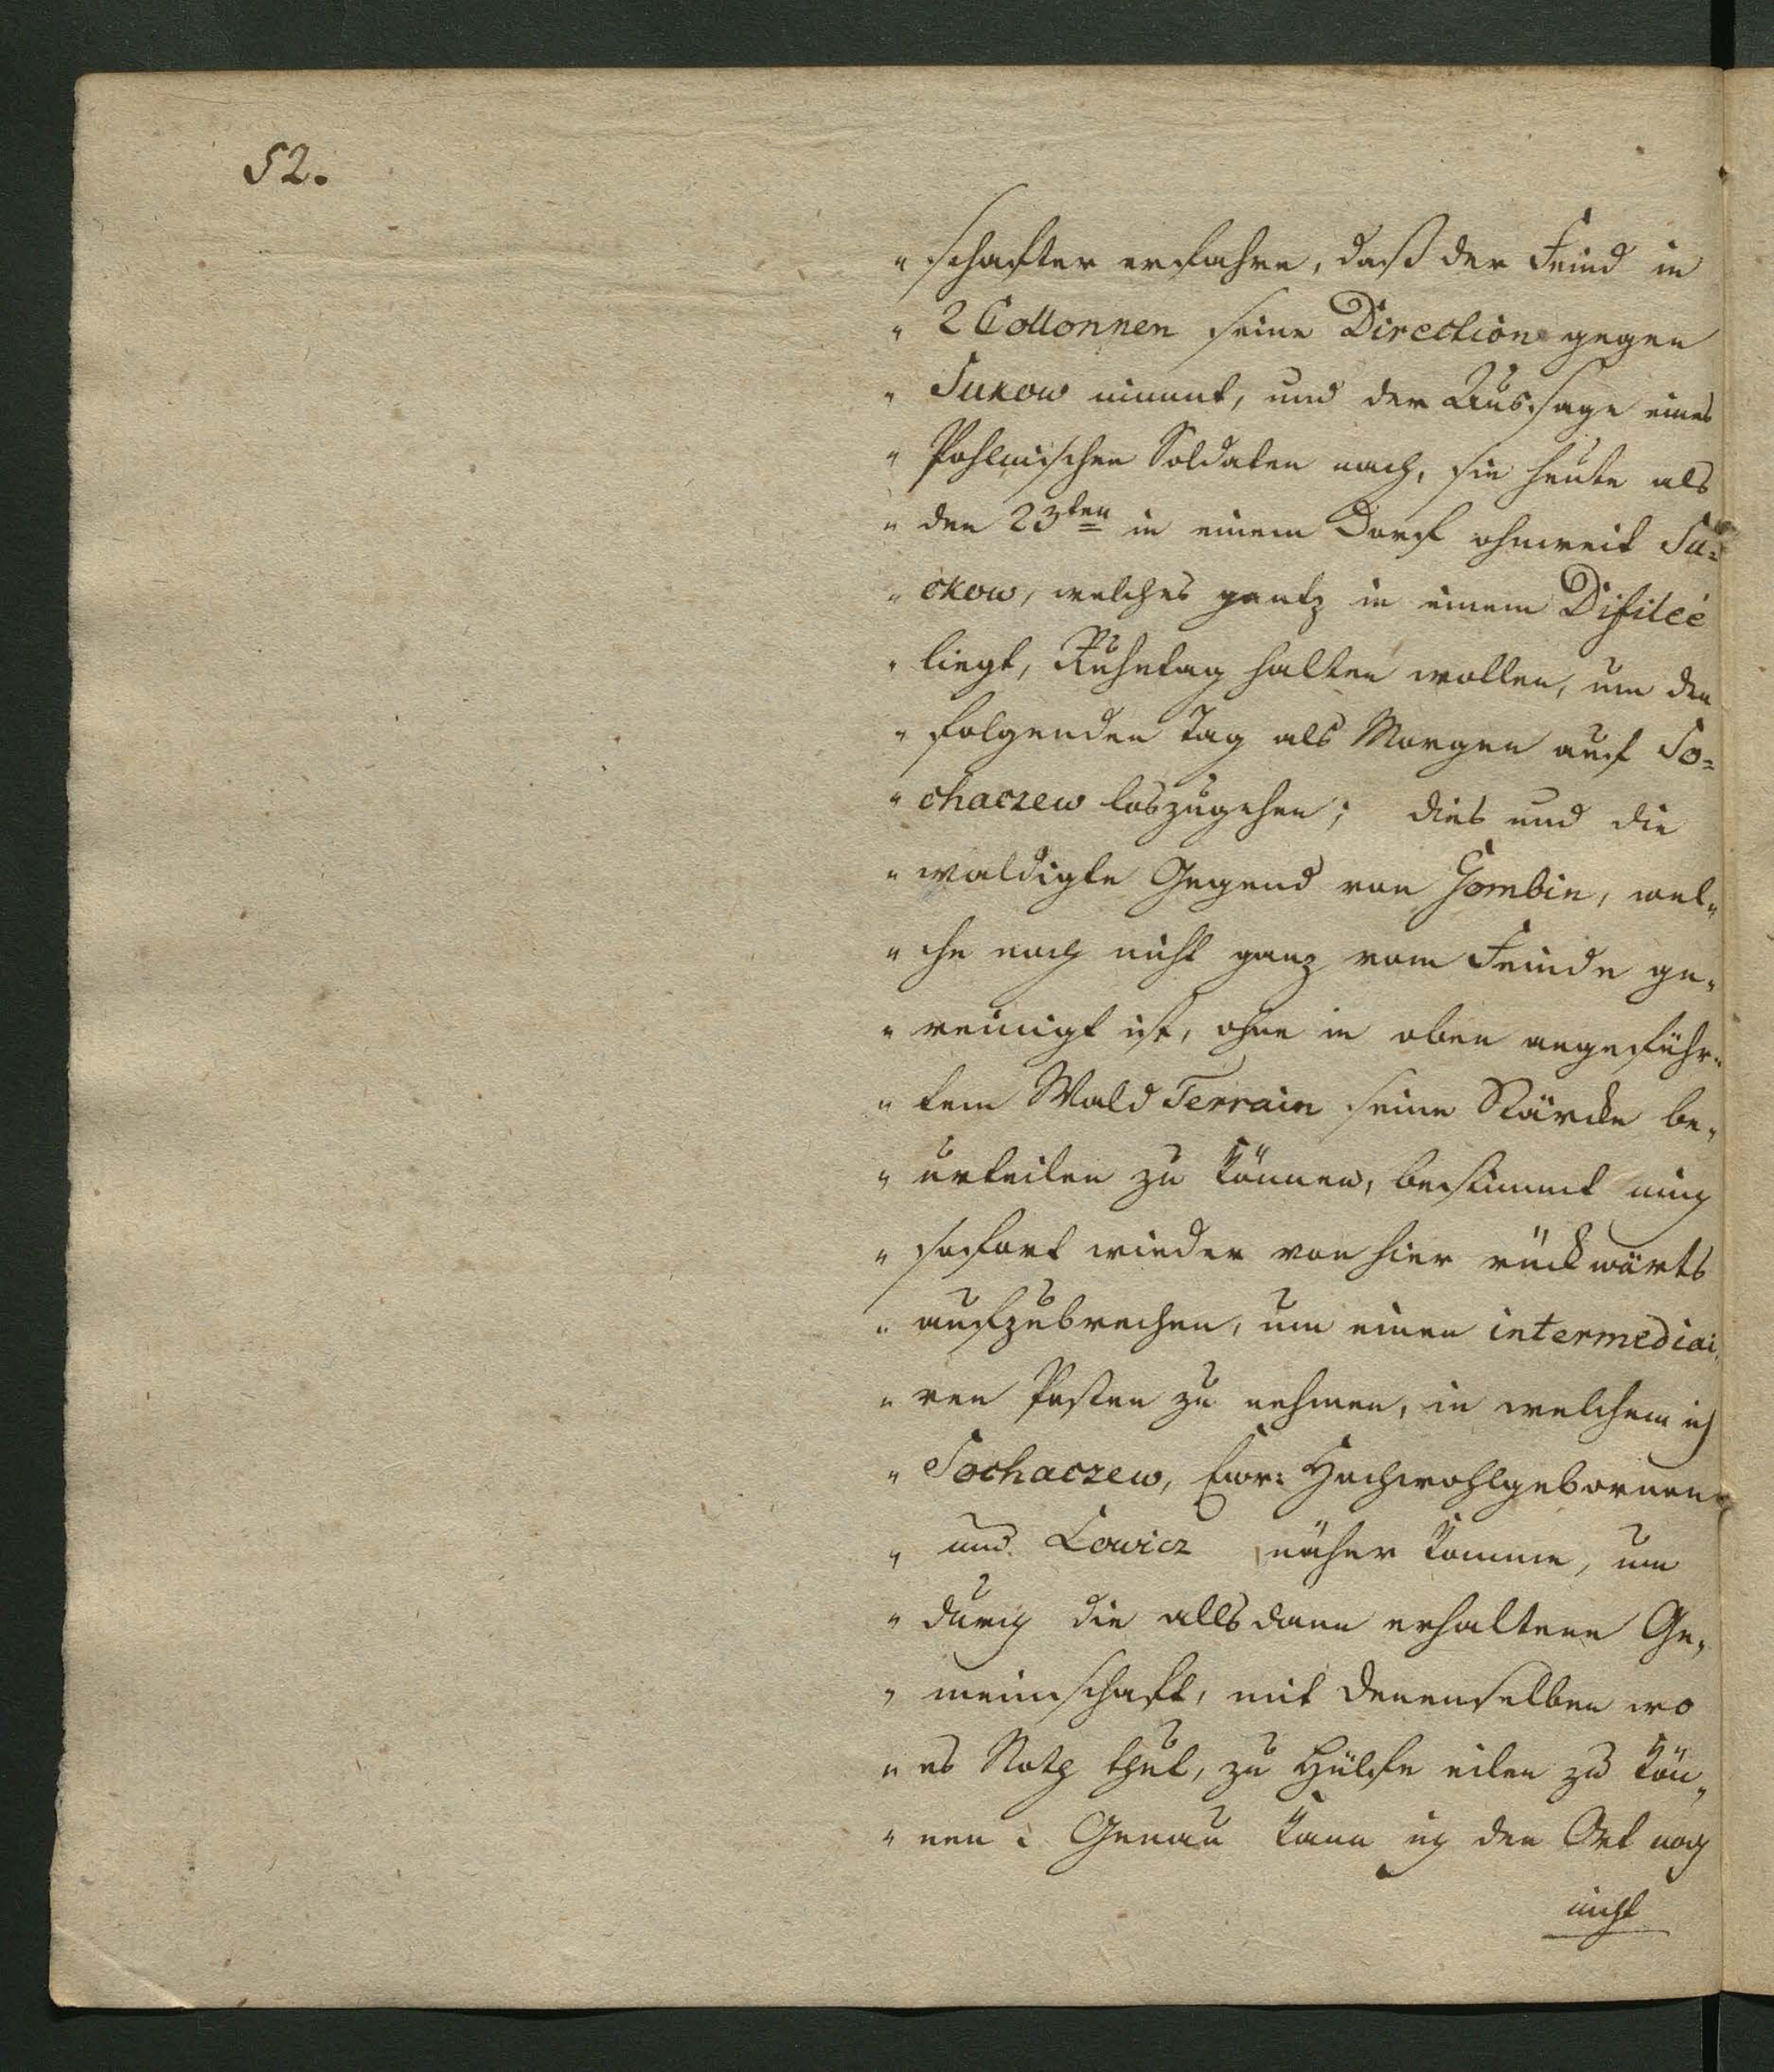 52.
" schafter erfahre, daß der Feind in
" 2 Collonnen seine Direction gegen
" Sukow nimmt, und der Aussage eines
" Pohlnischen Soldaten nach, sie heute als
" den 23ten in einem Dorf ohnweit Su=
" ckow, welches gantz in einem Difileé
" liegt, Ruhetag halten wollen, um den
" folgenden Tag als Morgen auf So=
" chaczew loszugehen; dies und die
" waldigte Gegend von Gombin, wel„
" che noch nicht ganz vom Feinde ge„
" reinigt ist, ohne in oben angeführ„
" tem Wald Terrain seine Stärcke be„
" urteilen zu können, bestimmt mich
" sofort wieder von hier rückwärts
" aufzubrechen, um einen intermediai„
" ren Posten zu nehmen, in welchem ich
" Sochaczew, Ewr: Hochwohlgebornen
" und Lowicz näher komme, um
" durch die allsdann erhaltene Ge„
" meinschaft, mit denenselben wo
" es Noth thut, zu Hülfe eilen zu kön„
" nen. Genau kann ich den Ort noch
nicht